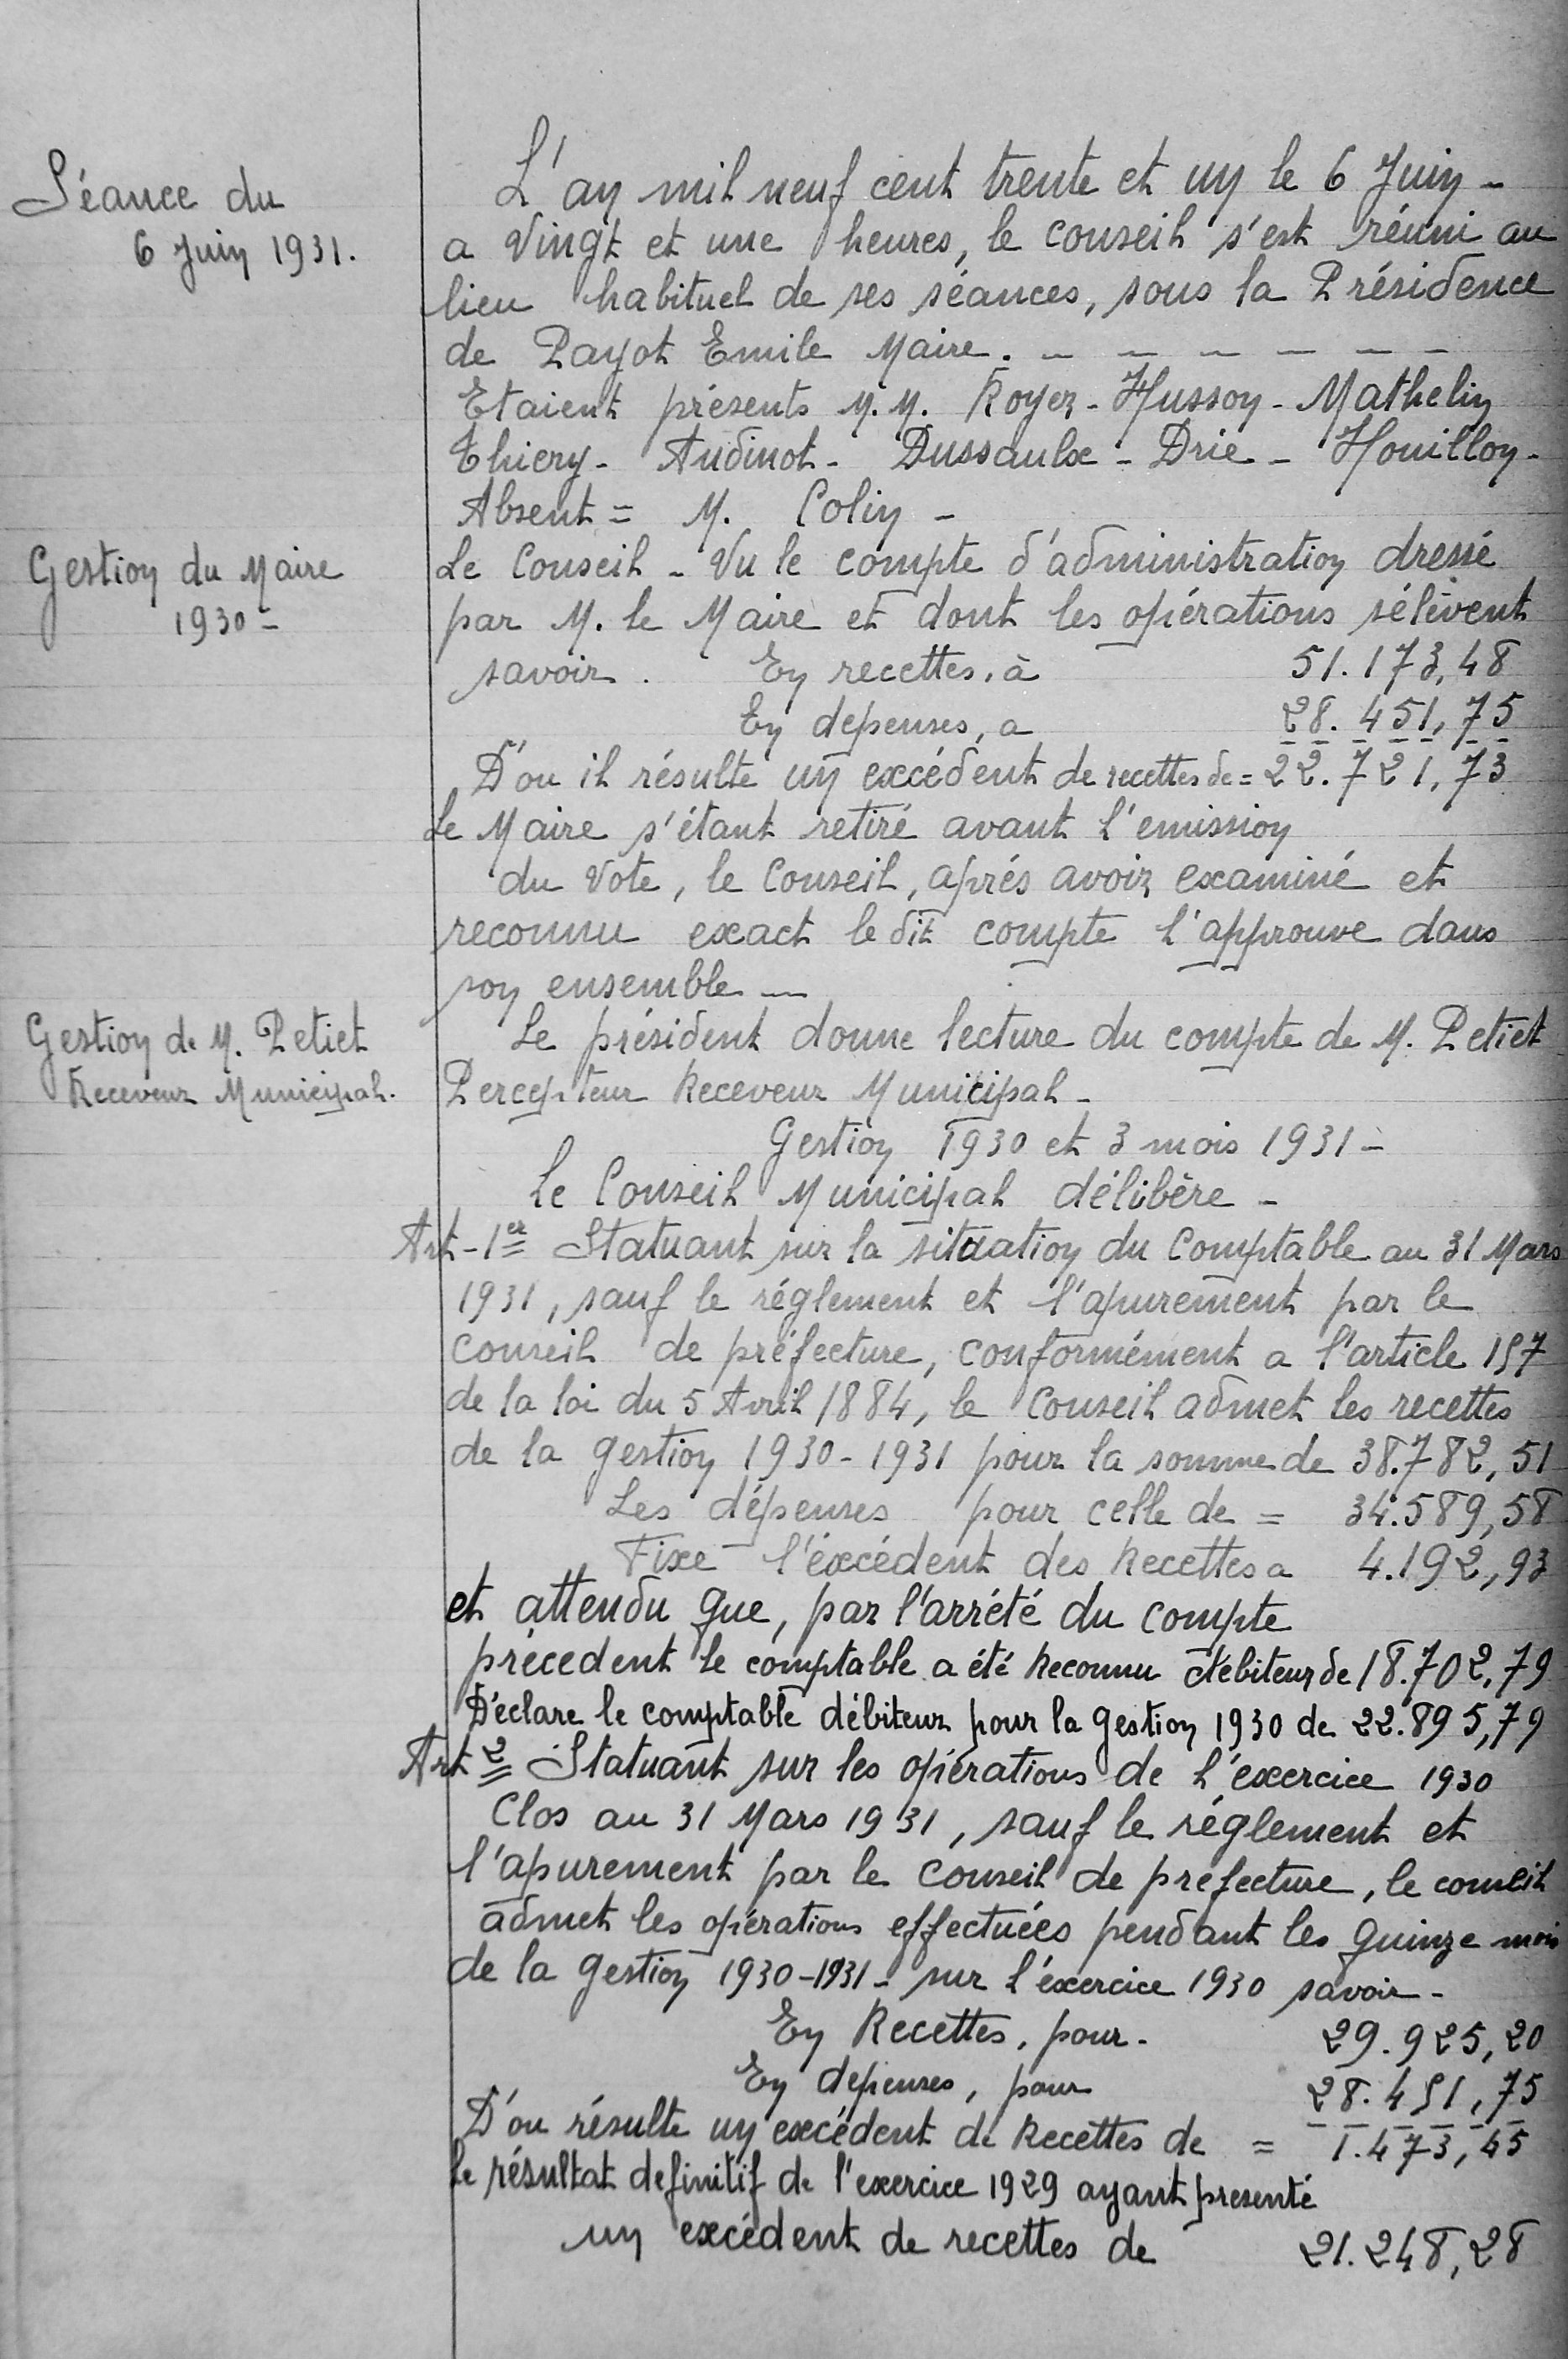 Séance du
6 Juin 1931.
L'an mil neuf cent trente et un le 6 Juin -
a Vingt et une heures, le conseil s'est réuni au
lieu habituel de ses séances, sous la Présidence
de Payot Emile Maire. - - - - - -
Etaient présents M.M. Royer - Husson - Mathelin
Thiery - Audinot - Dussaulx - Drie - Houillon -
Absent = M. Colin -
Gestion du Maire
1930 -
Le Conseil - Vu le compte d'administration dressé
par M. le Maire et dont les opérations sélèvent
savoir. En recettes, à 51.173,48
En depenses, a 28.451,75
D'ou il résulte un excédent de recettes de = 22.721,73
Le Maire s'étant retiré avant l'emission
du Vote, le Conseil, aprés avoir examiné et
reconnu exact le dit compte l'approuve dans
son ensemble -
Gestion de M. Petiet
Receveur Municipal.
Le président donne lecture du compte de M. Petiet
Percepteur Receveur Municipal -
Gestion 1930 et 3 mois 1931 -
Le Conseil Municipal délibère -
Art - 1er Statuant sur la situation du Comptable au 31 Mars
1931, sauf le réglement et l'apurement par le
Conseil de préfecture, conformément a l'article 157
de la loi du 5 Avril 1884, le Conseil admet les recettes
de la gestion 1930 - 1931 pour la somme de 38.782,51
Les dépenses pour celle de = 34.589,58
Fixe l'éxcédent des Recettes a 4.192,93
et attendu que, par l'arrété du compte
précedent le comptable a été Reconnu débiteur de 18.702,79
Déclare le comptable débiteur pour la gestion 1930 de 22.895,79
Art 2 Statuant sur les opérations de l'éxercice 1930
Clos au 31 Mars 1931, sauf le réglement et
l'apurement par le Conseil de prefecture, le conseil
admet les opérations effectuées pendant les quinze mois
de la gestion 1930-1931 - sur l'éxercice 1930 savoir -
En Recettes, pour - 29.925,20
En depenses, pour 28.451,75
D'ou résulte un excédent de Recettes de = 1.473,45
Le résultat definitif de l'exercice 1929 ayant presenté
un excédent de recettes de 21.248,28